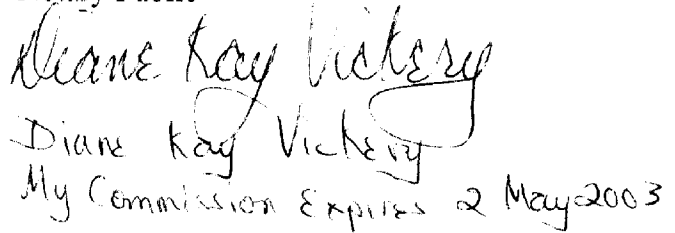 Diane Kay Vickery
Diane Kay Vickery
My Commission Expires 2 May 2003